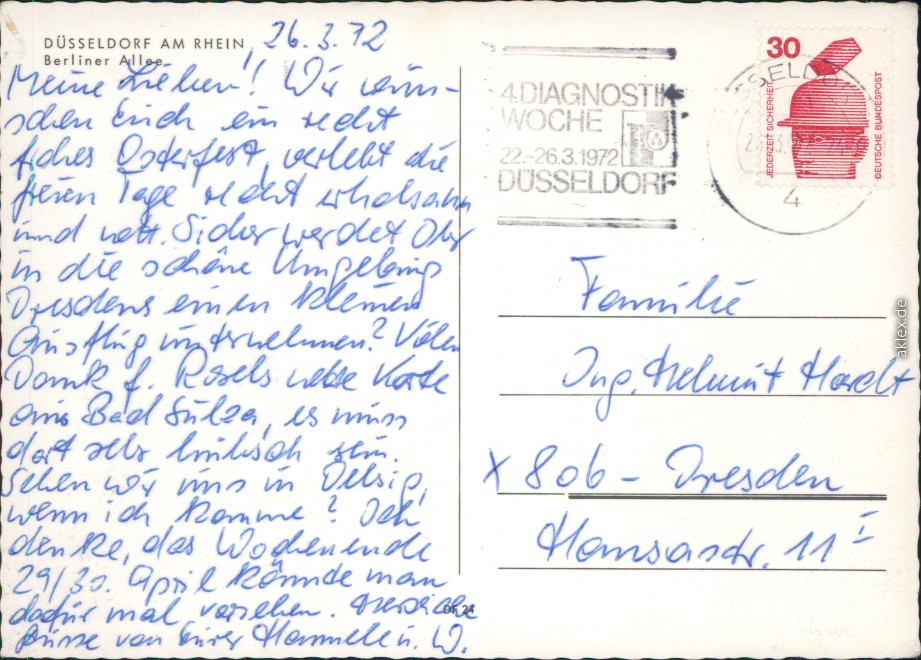 DÜSSELDORF AM RHEIN
Berliner Allee
26.3.72
Meine Lieben! Wir wün-
schen Euch ein recht
frohes Osterfest, verlebt die
freien Tage recht erholsam
und nett. Sicher werdet Ihr
in die schöne Umgebung
Dresdens einen kleinen
Ausflug unternehmen? Vielen
Dank f. Rosels nette Karte
aus Bad Sulza, es muss
dort sehr hübsch sein.
Sehen wir uns in
wenn ich komme? Ich
denke, das Wochenende
29/30. April könnte man
dafür mal vorsehen. Herzliche
Grüsse von Eurer Hannele u. W.
DF 24
4. DIAGNOSTIK
WOCHE
22.-26.3.1972
DÜSSELDORF
4
30
JEDERZEIT SICHERHEIT
DEUTSCHE BUNDESPOST
Familie
Ing. Helmut Hardt
X 806 - Dresden
Hansastr. 11 I
aklex.de